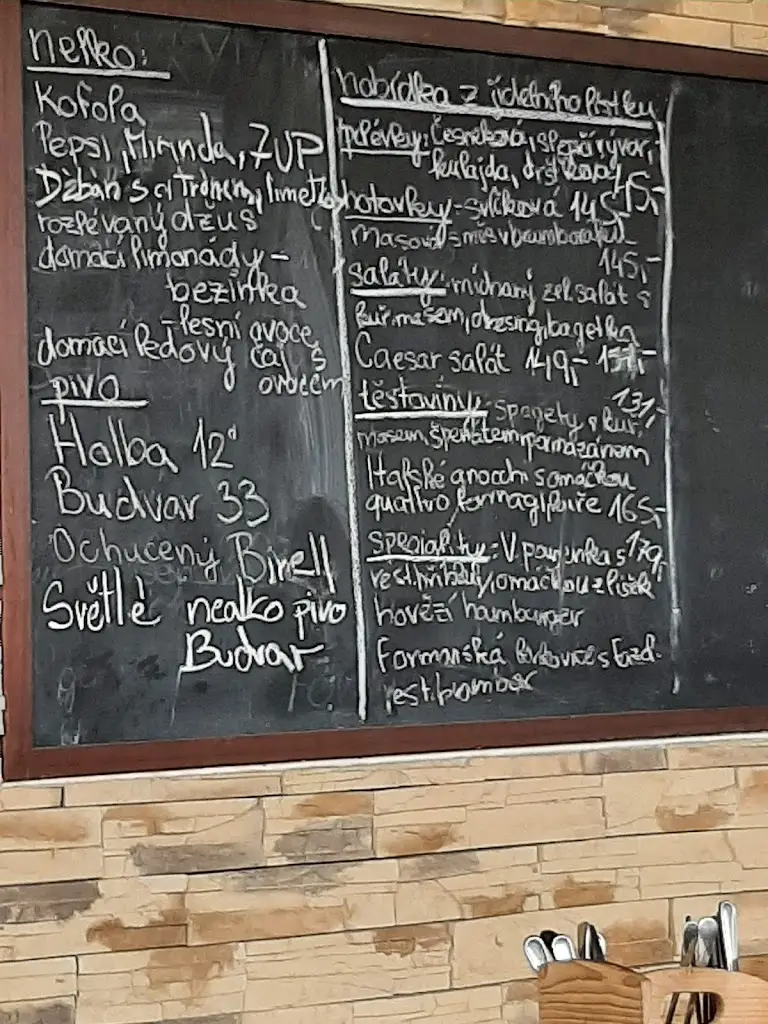 nelko:
Kofola
Pepsi, Mirinda, 7UP
Džbán s citrónem, limetkou
rozlévaný džus
domácí limonády -
bezinka
- lesní ovoce
domácí ledový čaj s
ovocem
pivo
Holba 12°
Budvar 33
Ochucený Birell
Světlé nealko pivo
Budvar
nabídka z jídelního lístku
polévky: česneková, slepičí vývar,
kulajda, dršťková 45,-
hotovky - svíčková 145,-
masová směs v bramboráku
145,-
saláty: míchaný zel. salát s
kuř. masem, dresing, bagetka
Caesar salát 149,-
těstoviny: Spagety s kuř. 131,-
masem, špenátem, parmazánem
Italské gnocchi s omáčkou
quattro formaggi, kuře 165,-
speciality: V 179,-
rest. příbály, omáčkou z lišek
hovězí hamburger
Formanská s
rest. brambor